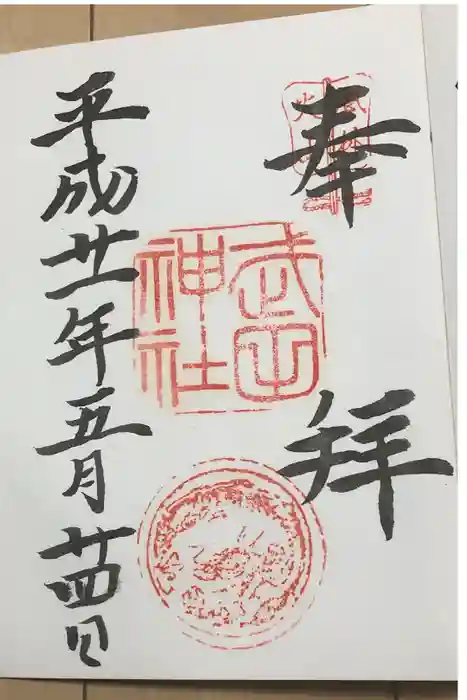 奉拝
武田
神社
平成廿一年五月廿四日